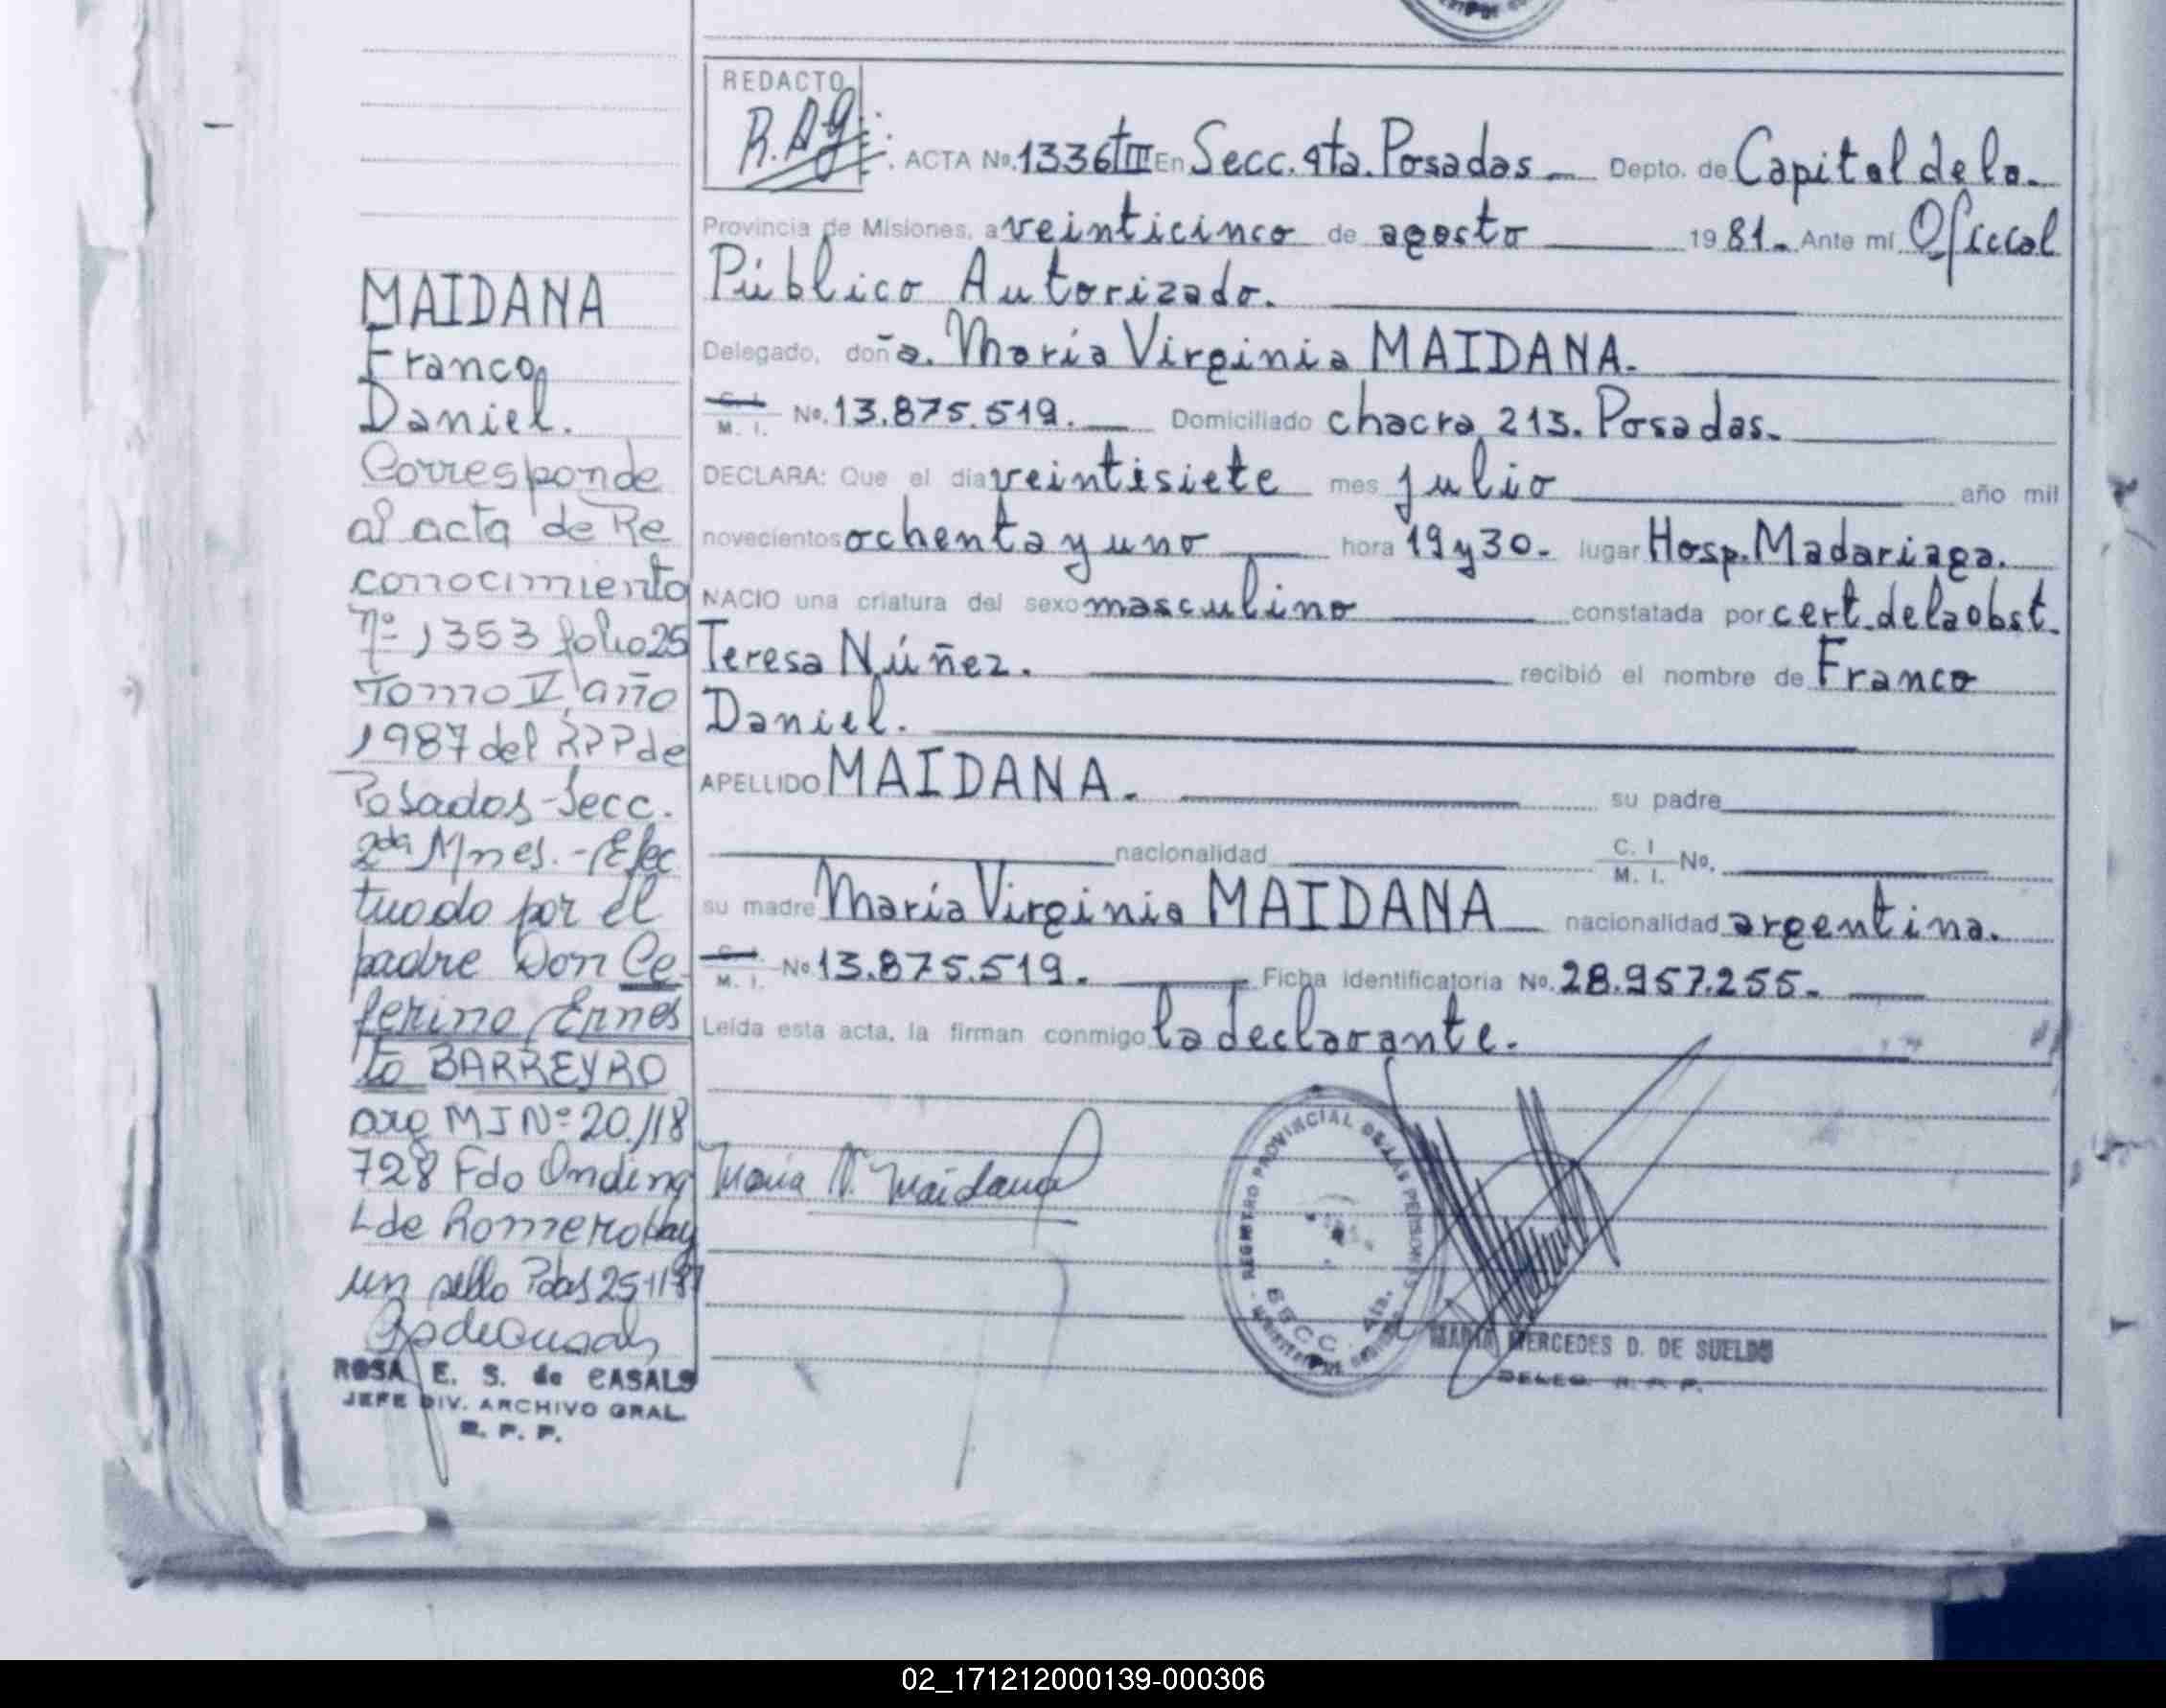 MAIDANA
Franco
Daniel.
Corresponde
al acta de Re
conocimiento
Nº 1353 folio 25
Tomo V, año
1987 del RPP de
Posadas-Secc.
2da Mnes. - Efec
tuado por el
padre Don Ce
ferino Ernes
to BARREYRO
arg MI Nº 20.118
728 Fdo Ondina
L de Romero Hay
un sello Pdas 25-11-87
ROSA E. S. de CASALS
JEFE DIV. ARCHIVO GRAL.
R. P. P.
REDACTO
R.A.G.
ACTA No. 1336 TIII En Secc. 4ta. Posadas Depto. de Capital de la
Provincia de Misiones, a veinticinco de agosto 1981. Ante mí Oficial
Público Autorizado.
Delegado, doña. María Virginia MAIDANA.
C. I. M. I. No. 13.875.519. Domiciliado chacra 213. Posadas.
DECLARA: Que el día veintisiete mes julio año mil
novecientos ochenta y uno hora 19 y 30. lugar Hosp. Madariaga.
NACIO una criatura del sexo masculino constatada por cert. de la obst.
Teresa Núñez. recibió el nombre de Franco
Daniel.
APELLIDO MAIDANA. su padre
nacionalidad C. I M. I. No.
su madre María Virginia MAIDANA nacionalidad argentina.
C. I. M. I. No. 13.875.519. Ficha Identificatoria No. 28.957.255.
Leída esta acta, la firman conmigo la declarante.
Maria V. Maidana
REGISTRO PROVINCIAL DE LAS PERSONAS
SECC. 4ta.
MARIA MERCEDES D. DE SUELDO
DELEG. R. P. P.
02_171212000139-000306